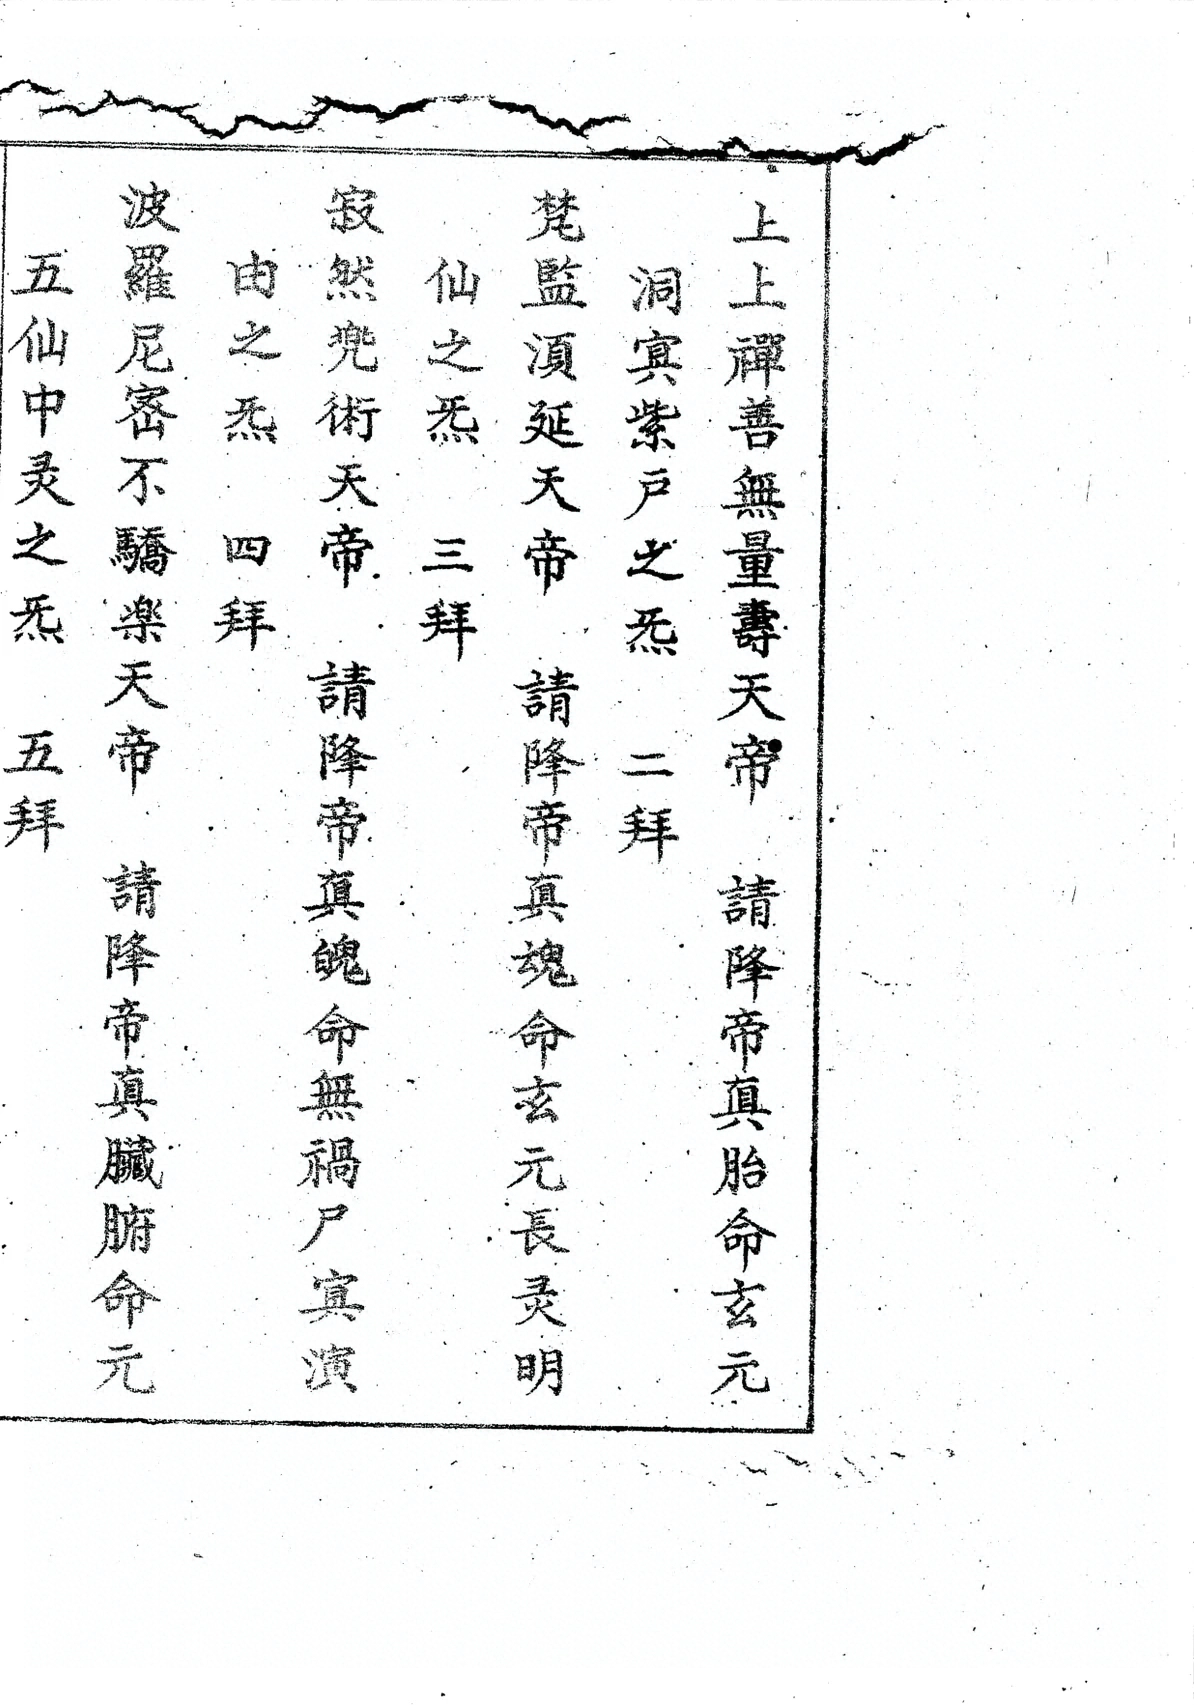 上上禪善無量壽天帝　請降帝真胎命玄元
洞寘紫戶之炁　二拜
梵監湏延天帝　請降帝真魂命玄元長灵明
仙之炁　三拜
寂然兠術天帝　請降帝真魄命無禍尸寘演
由之炁　四拜
波羅尼宻不驕楽天帝　請降帝真臟腑命元
五仙中灵之炁　五拜